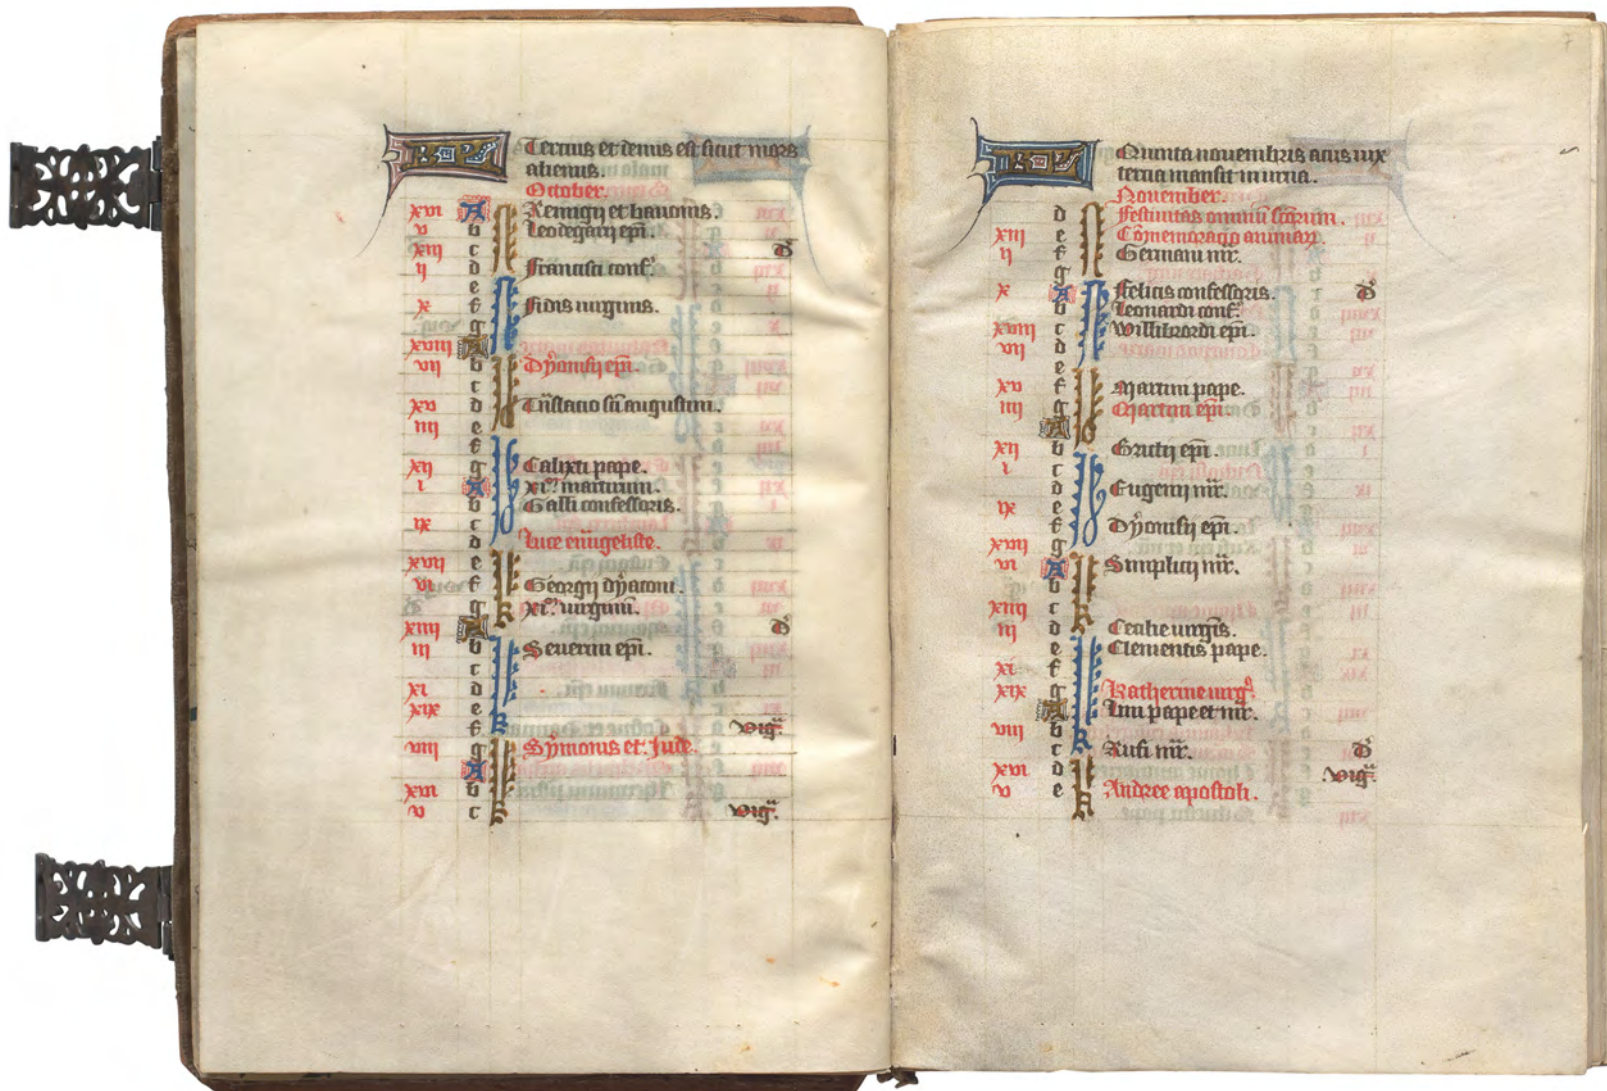 KL Tercius et denus est sicut mors
alienus.
October.
xvi A Remigij et bauonis.
v b Leodegarij epī.
xiij c D
ij d Francisci conf.
e
x f Fidis uirginis.
g
xviij A
vij b Dyonisij epī.
c
xv d Trāslatio sc̄i augustini.
iiij e
f
xij g Calixti pape.
i A xi.ͫ martirum.
b Galli confessoris.
ix c
d Luce ewãgeliste.
xvij e
vi f Georgij dyaconi.
g xi.ͫ uirginū.
xiiij A D
iij b Seuerini epī.
c
xi d
xix e
f vigᵃ.
viij g Symonis et Jude.
A
xvi b
v c vigᵃ.
KL Quinta nouembris acus uix
tercia mansit in urna.
November.
d Festiuitas omniū sc̄orum.
xiij e Cōmemoracio animarꝝ.
ij f Germani mr̄.
g
x A Felicis confessoris. D
b Leonardi conf.
xviij c Willibrordi epī.
vij d
e
xv f Martini pape.
iiij g Martini epī.
A
xij b Brictij epī.
i c
d Eugenij mr̄.
ix e
f Dyonisij epī.
xvij g
vi A Simplicij mr̄.
b
xiiij c
iij d Cecilie uirgīs.
e Clementis pape.
xi f
xix g Katherine uirg.
A Lini pape et mr̄.
viij b
c Rufi mr̄. D
xvi d vigᵃ.
v e Andree apostoli.